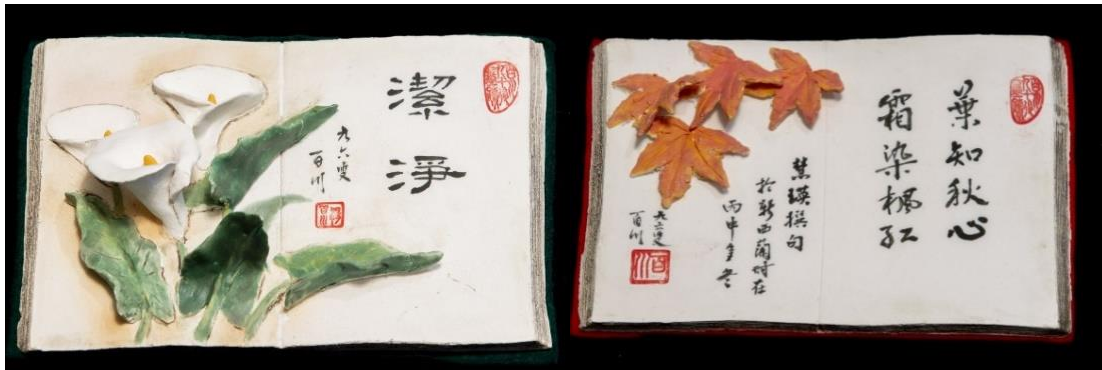 潔淨
九六叟
百川
葉知秋心
霜染楓紅
慧瑛撰句
於新西蘭時在
丙申年冬
九六叟
百川
百川